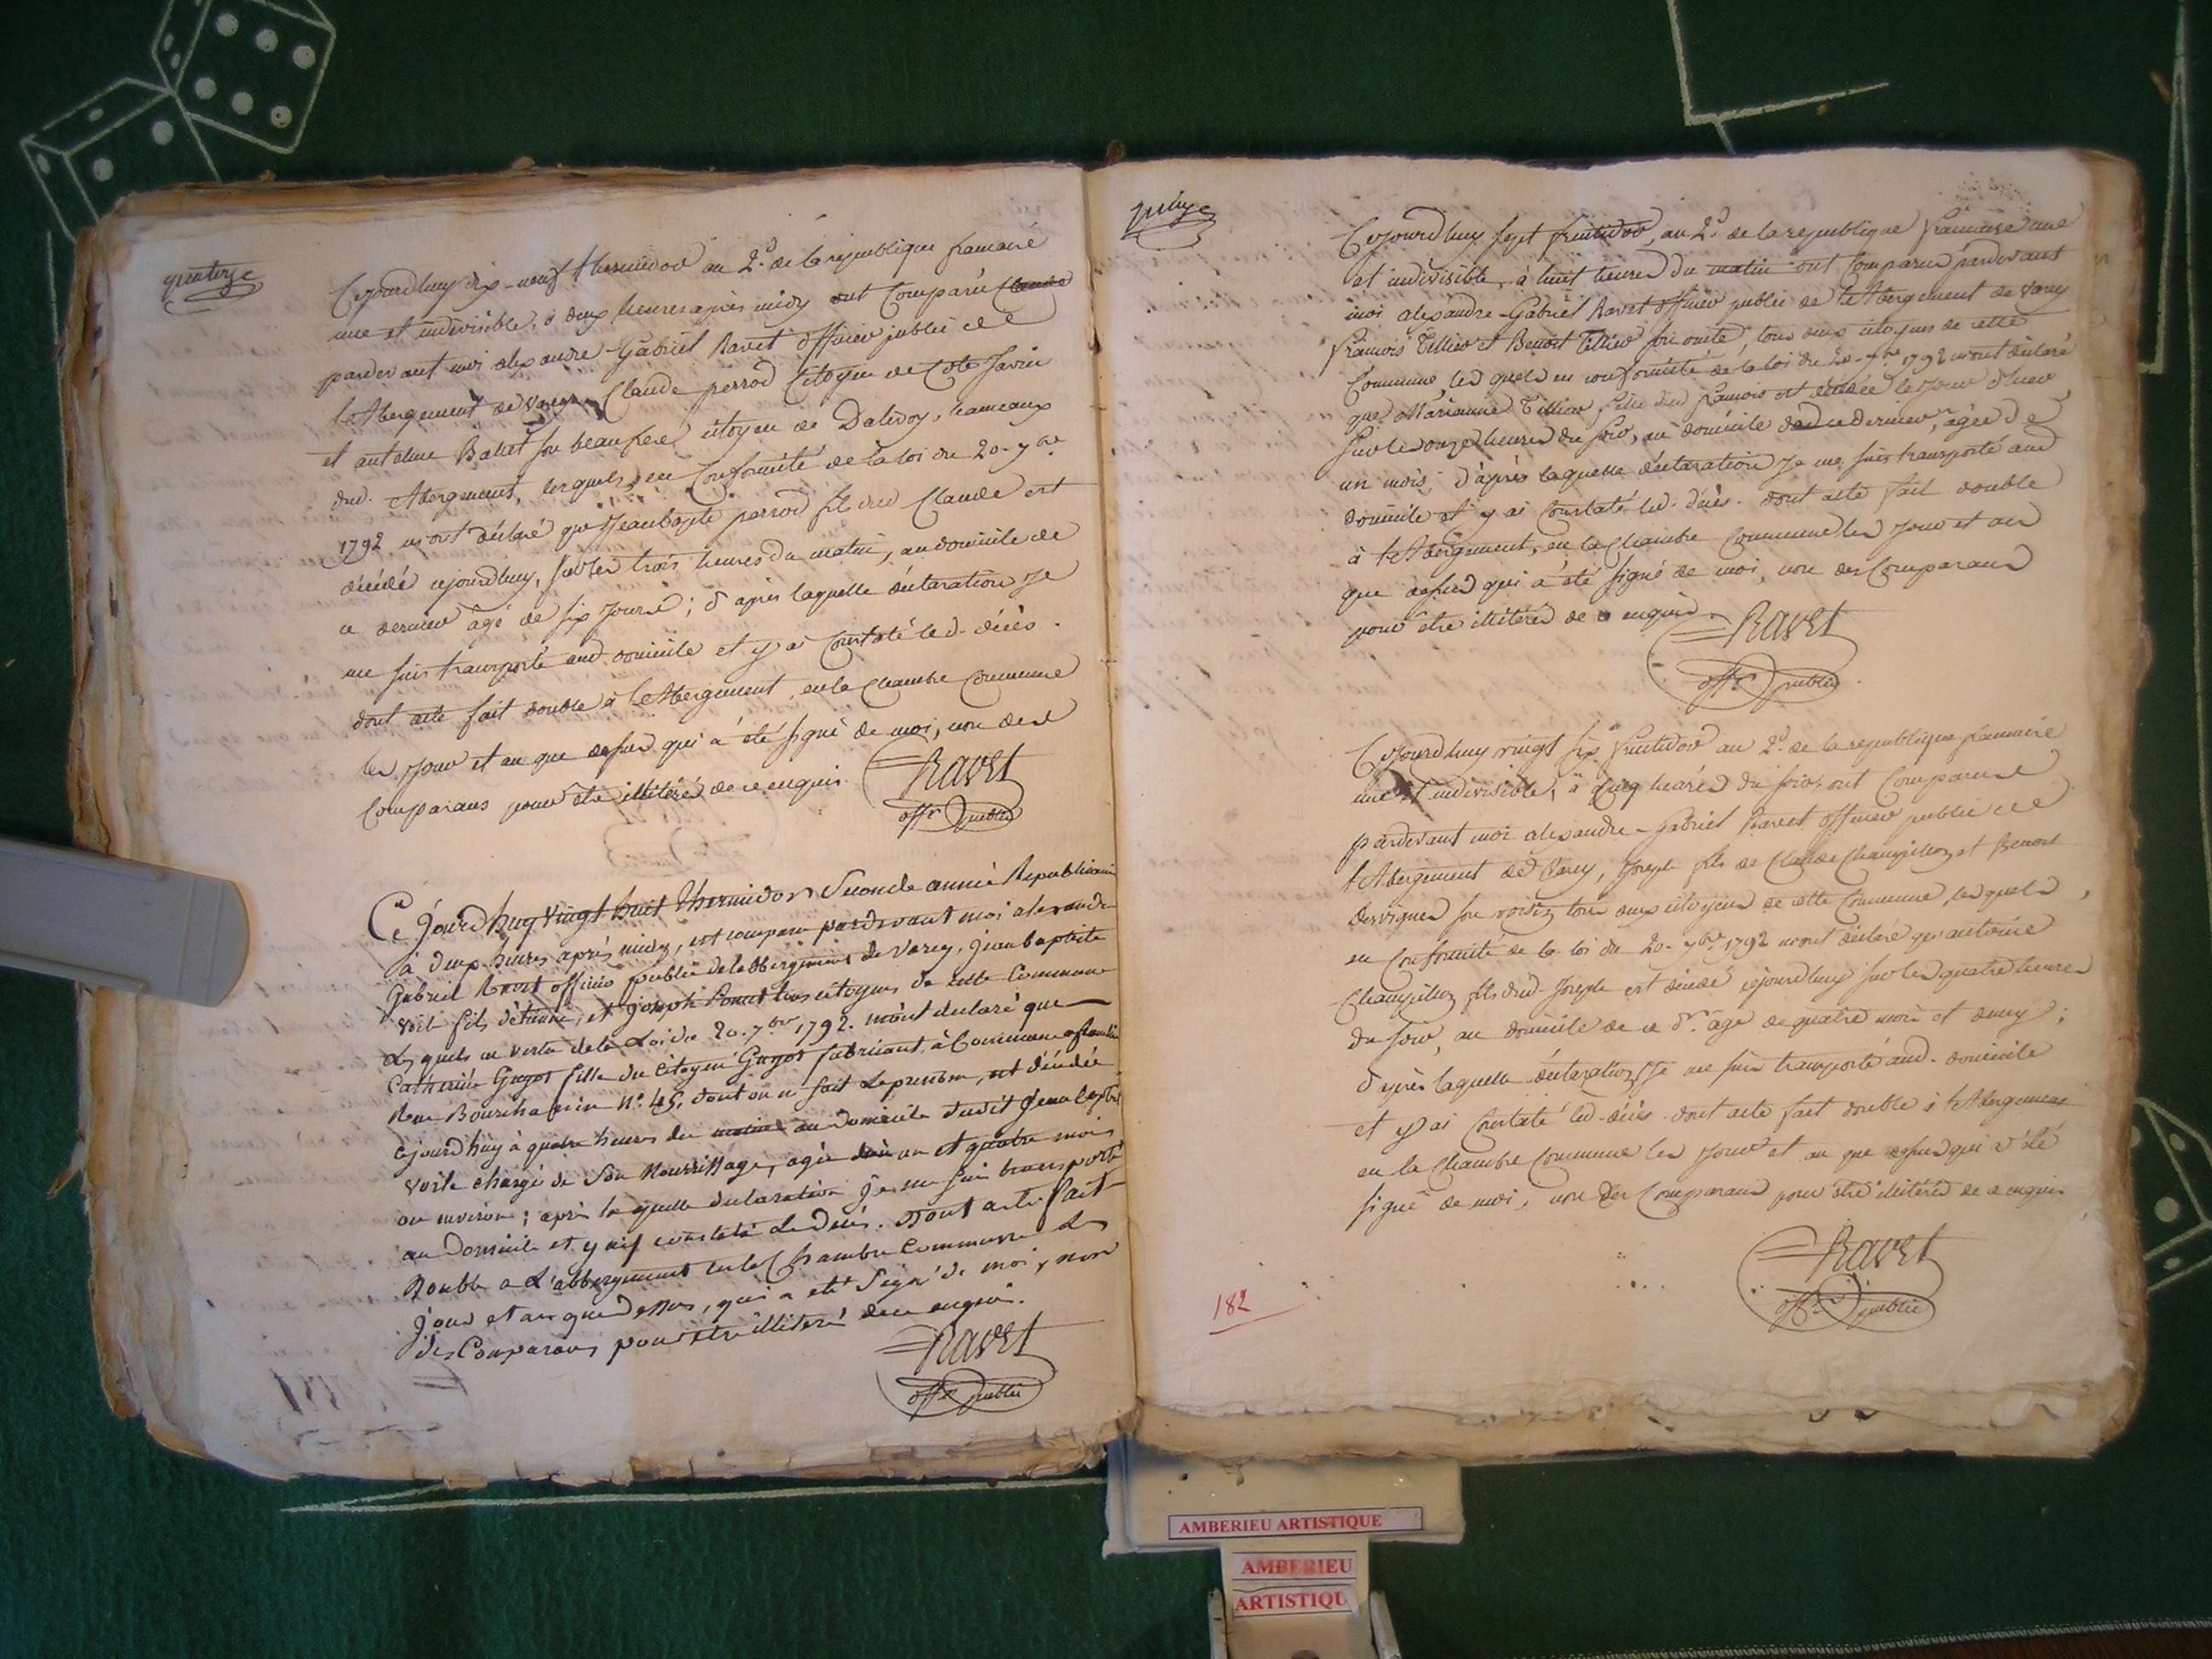 quatorze
Cejourdhuy dix-neuf thermidor an 2.d de la republique francaise
une et indivisible, à deux heures après midy ont Comparu Claude
pardevant moi alexandre-Gabriel Ravet officier public de
l'Abergement de Varey Claude perrod Citoyen de Côte Savin
et antelme Ballet son beaufrere citoyen de Dalivoy, hameaux
dud. Abergement, lesquels, en Conformité de la loi du 20. 7bre
1792 m'ont déclaré que Jeanbapte perrod fils dud Claude est
décédé cejourdhuy, sur les trois heures du matin, au domicile de
ce dernier âgé de six jours; d'après laquelle déclaration Je
me suis transporté aud. domicile et y ai Constaté led. décès.
dont acte fait double à l'Abergement, en la Chambre Commune
les Jour et an que dessus qui a été signé de moi, non des
Comparans pour être illitérés de ce enquis.
Ravet
offr. public
Ce Jourd'huy vingt huit thermidor Seconde année Republicaine
à deux heures après midy, est comparu pardevant moi alexandre
Gabriel Ravet officier public de labbergement de varey, jean baptiste
voile fils d'étienne, et joseph Ponnet tous citoyens de cette Commune
Lesquels en vertu de la Loi du 20. 7bre 1792. m'ont déclaré que
Catherine Guyot fille du Citoyen Guyot fabricant à Commune affranchie
Rue Bourchanin N°. 45, dont on ne sait Le prénom, est décédée
cejourd'huy à quatre heures du matin au domicile dudit Jean baptiste
voile chargé de Son Nourrissage, agée d'un an et quatre mois
ou environ; après laquelle declaration Je me suis transporté
au Domicile et y ai constaté Le décès. Dont acte fait
Double a L'abbergement en la Chambre Commune Les
jour et an que Dessus, qui a eté Signé de moi, non
des Comparans pour etre illiterés de ce enquis.
Ravet
offr. public
quinze
Cejourdhuy sept fructidor, an 2.d de la republique francaise une
et indivisible, à huit heures du matin ont Comparus pardevant
moi alexandre-Gabriel Ravet officier public de l'Abergement de Varey
francois Tillier et Benoit Tillier son oncle, tous deux citoyens de cette
Commune, lesquels en conformité de la loi du 20. 7bre 1792 m'ont déclaré
que Marianne Tillier fille dud francois est décédée le jour d'hier
sur les onze heures du soir, au domicile de ce dernier, âgée de
un mois; d'après laquelle déclaration Je me suis transporté aud
domicile et y ai Constaté led. décès. dont acte fait double
à l'Abergement, en la Chambre Commune les Jour et an
que dessus qui a été signé de moi, non des Comparans
pour être illitérés de ce enquis.
Ravet
offr. public
Cejourdhuy vingt six fructidor an 2.d de la republique francaise
une et indivisible, à cinq heures du soir, ont Comparus
pardevant moi alexandre-Gabriel Ravet officier public de
l'Abergement de Varey, Joseph fils de Claude Champillon et Benoit
Desvignes son voisin tous deux citoyens de cette Commune, lesquels,
en Conformité de la loi du 20. 7bre 1792 m'ont déclaré que antoine
Champillon fils dud Joseph est décédé cejourdhuy sur les quatre heures
du soir, au domicile de ce dr. âgé de quatre mois et demy;
d'après laquelle déclaration Je me suis transporté aud. domicile
et y ai Constaté led. décès. dont acte fait double à l'Abergement
en la Chambre Commune les Jour et an que dessus qui a été
signé de moi, non des Comparans pour être illitérés de ce enquis
Ravet
offr. public
182
AMBERIEU ARTISTIQUE
AMBERIEU
ARTISTIQU